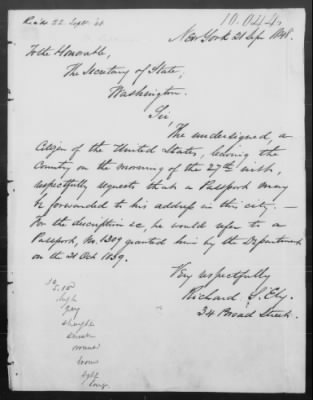 Rec'd 22 Sept. 48
10.044
New York 21 Sep. 1848.
To the Honorable,
The Secretary of State,
Washington.
Sir,
The undersigned, a
Citizen of the United States, leaving the
Country on the morning of the 27th inst.,
respectfully requests that a Passport may
be forwarded to his address in this city. —
For the description &c, he would refer to a
Passport, No. 1309 granted him by the Department
on the 21 Oct 1839.
Very respectfully
Richard S. Ely.
34 Broad Street.
high
gray
straight
small
round
brown
light
long